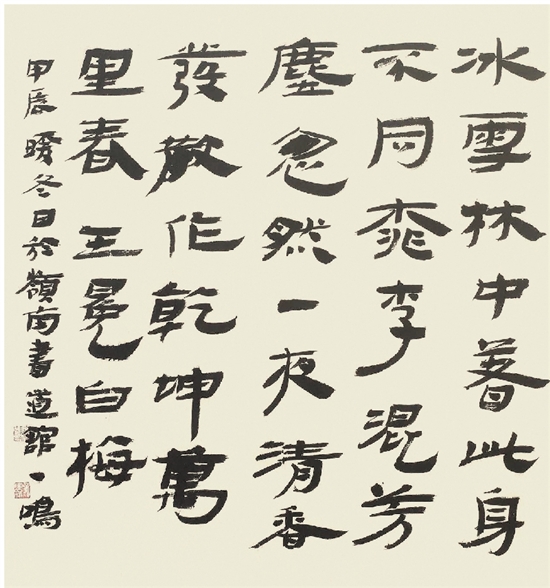 冰雪林中著此身
不同桃李混芳
塵忽然一夜清香
發散作乾坤萬
里春王冕白梅
甲辰暖冬日於嶺南書道館一鳴